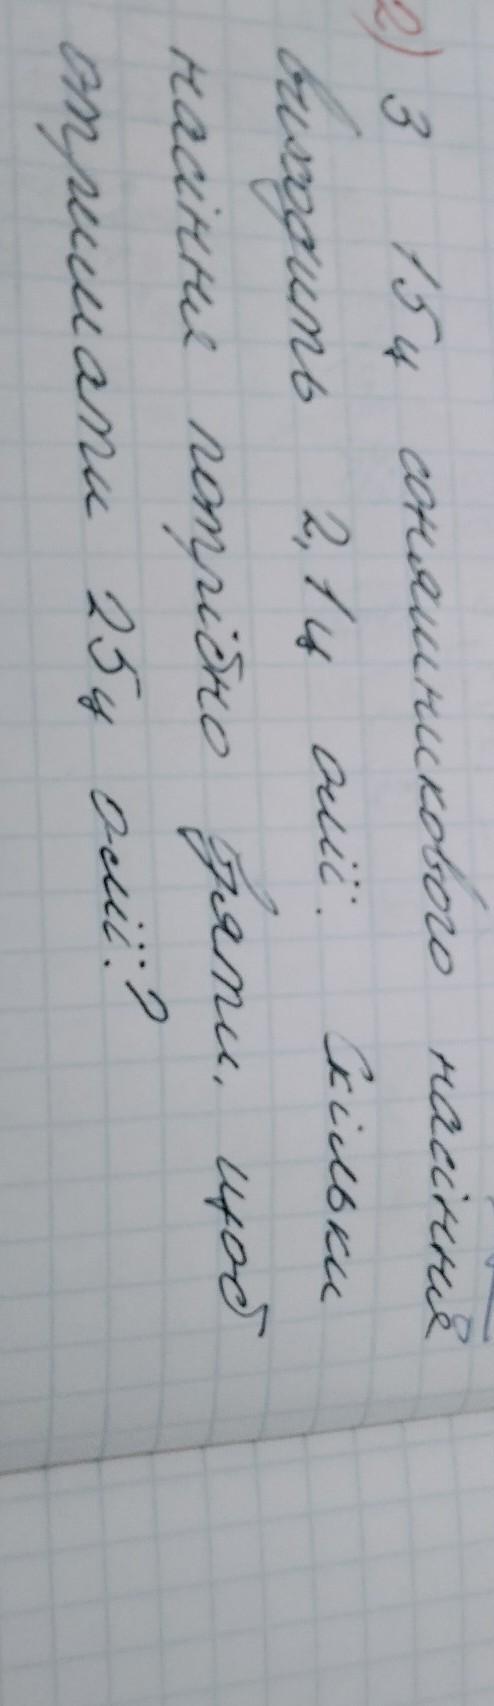 2) З 15ц соняшникового насіння
виходить 2,1ц олії. Скільки
насіння потрібно взяти, щоб
отримати 25ц олії?